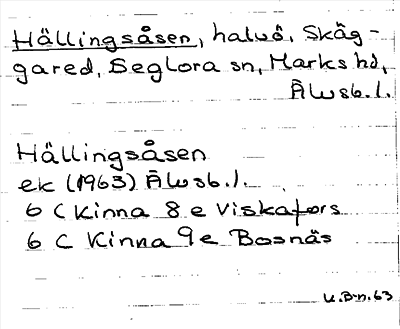 Hällingsåsen, halvö, Skäg-
gared, Seglora sn, Marks hd,
Älvsb.l.
Hällingsåsen
ek (1963) Älvsb.l.
6 C Kinna 8 e Viskafors
6 C Kinna 9 e Bosnäs
U.B-n.63